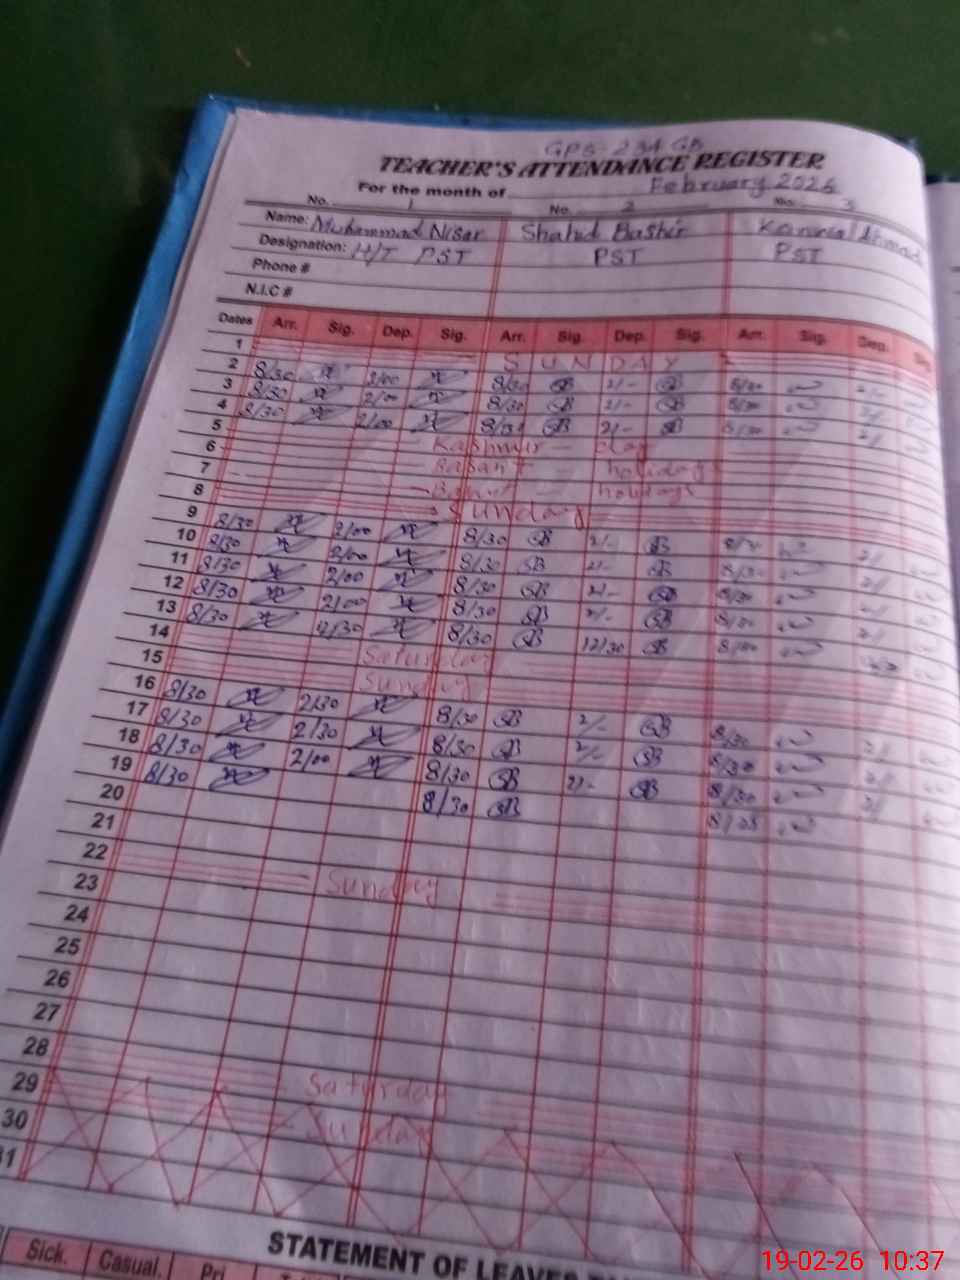 GPS-234 GB
TEACHER'S ATTENDANCE REGISTER
For the month of February 2026
No. 1 No. 2 No. 3
Name: Muhammad Nisar Shahid Bashir Ahmad
Designation: H/T PST PST PST
Phone #
N.I.C #
Dates Arr. Sig. Dep. Sig. Arr. Sig. Dep. Sig. Arr. Sig. Dep.
1 SUNDAY
2 8/30 2/00 8/30 2/- 8/30 2/-
3 8/30 2/00 8/30 2/- 8/30 2/
4 8/30 2/00 8/30 2/- 8/30 2/
5 Kashmir - day
6 Basant - holidays
7 Basant - holidays
8 Sunday
9 8/30 2/00 8/30 2/- 8/30 2/
10 8/30 2/00 8/30 2/- 8/30 2/
11 8/30 2/00 8/30 2/- 8/30 2/
12 8/30 2/00 8/30 2/- 8/30 2/
13 8/30 12/30 8/30 12/30
14 Saturday
15 Sunday
16 8/30 2/30 8/30 2/- 8/30 2/
17 8/30 2/30 8/30 2/- 8/30 2/
18 8/30 2/00 8/30 2/- 8/30 2/
19 8/30 8/30
20
21
22 Sunday
23
24
25
26
27
28 Saturday
29 Sunday
30
31
STATEMENT OF LEAVES
Sick. Casual. Pri
19-02-26 10:37